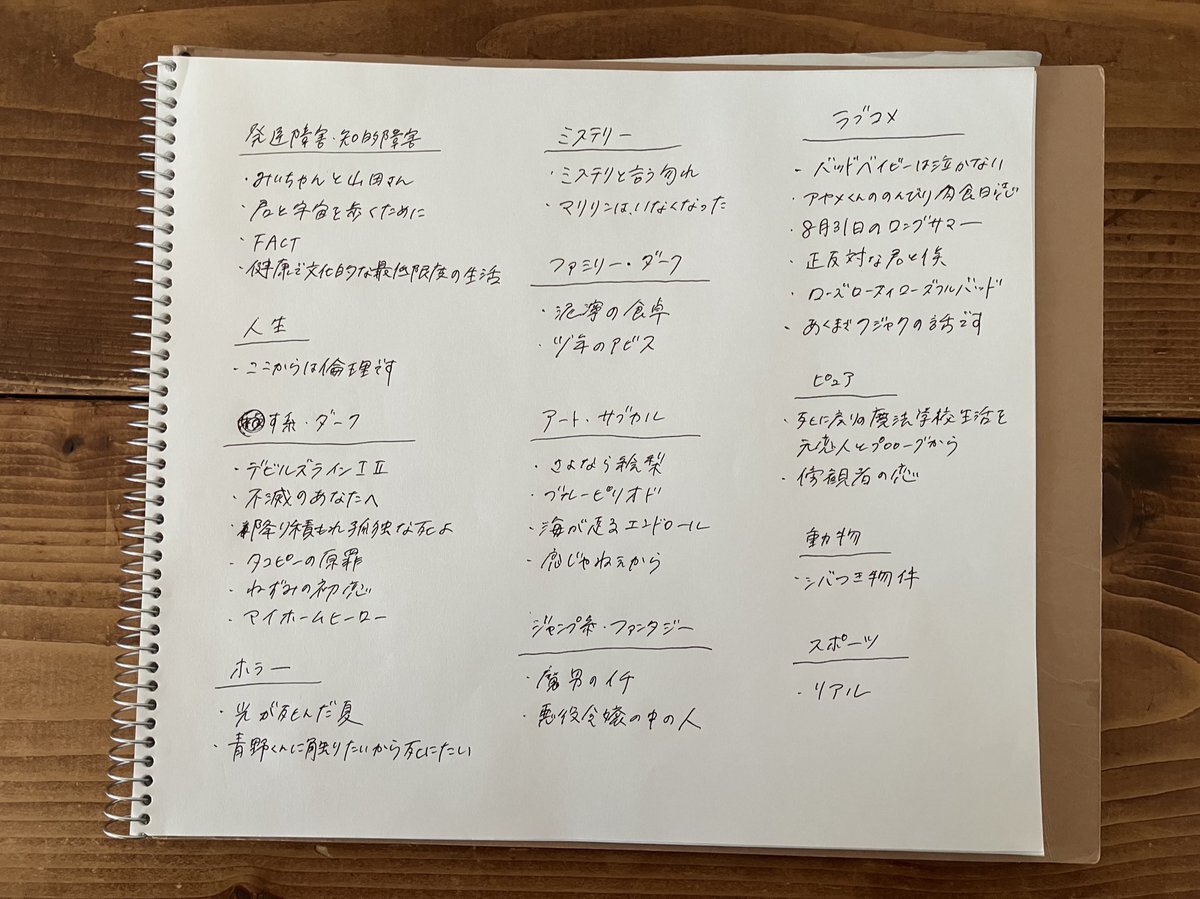 発達障害・知的障害
・みいちゃんと山田さん
・君と宇宙を歩くために
・FACT
・健康で文化的な最低限度の生活
人生
・ここからは倫理です
す系・ダーク
・デビルズラインⅠⅡ
・不滅のあなたへ
・降り積もれ孤独な死よ
・タコピーの原罪
・ねずみの初恋
・マイホームヒーロー
ホラー
・光が死んだ夏
・青野くんに触りたいから死にたい
ミステリー
・ミステリと言う勿れ
・マリリンは、いなくなった
ファミリー・ダーク
・泥濘の食卓
・少年のアビス
アート・サブカル
・さよなら絵梨
・ブルーピリオド
・海が走るエンドロール
・恋じゃねぇから
ジャンプ系・ファンタジー
・魔男のイチ
・悪役令嬢の中の人
ラブコメ
・バッドベイビーは泣かない
・アヤメくんののんびり肉食日誌
・8月31日のロングサマー
・正反対な君と僕
・ローズローズィローズフルバッド
・あくまでクジャクの話です
ピュア
・死に戻りの魔法学校生活を
元恋人とプロローグから
・傍観者の恋
動物
・シバつき物件
スポーツ
・リアル